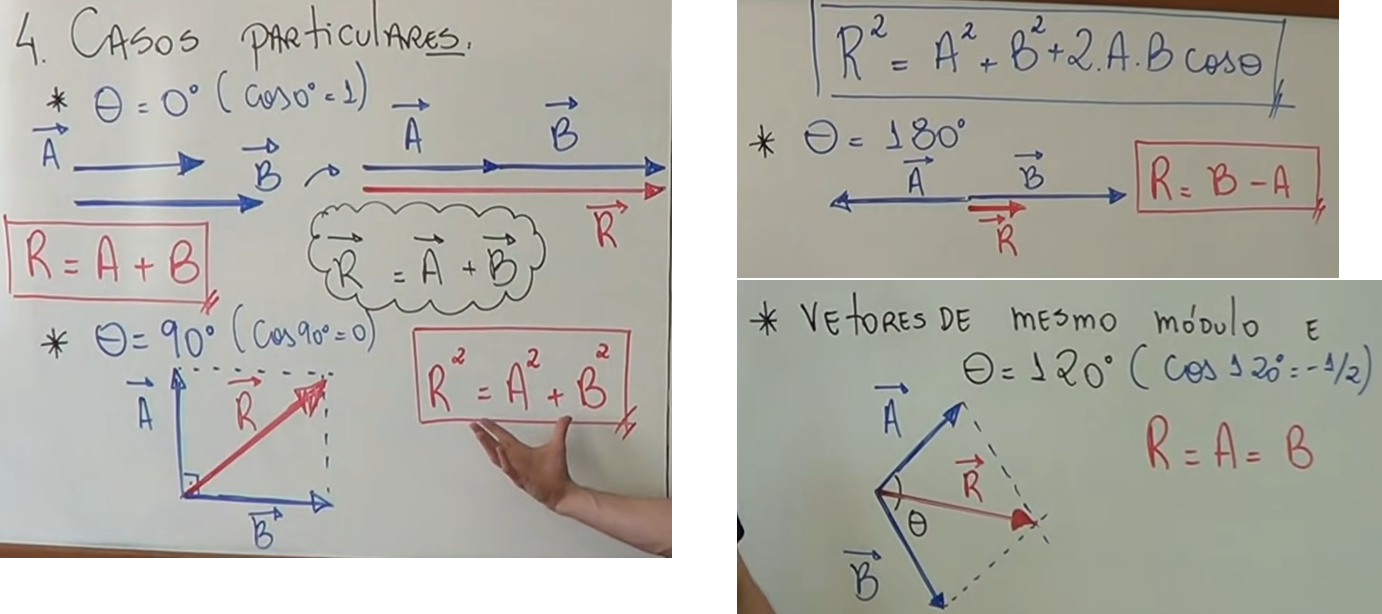 4. CASOS PARTICULARES.
* θ = 0° (cos0° = 1)
A⃗
B⃗
A⃗ B⃗
R⃗
R = A + B
R⃗ = A⃗ + B⃗
* θ = 90° (cos90° = 0)
A⃗
R⃗
B⃗
R² = A² + B²
R² = A² + B² + 2.A.B cosθ
* θ = 180°
A⃗ B⃗
R⃗
R = B - A
* VETORES DE MESMO MÓDULO E
θ = 120° (cos 120° = -1/2)
A⃗
R⃗
θ
B⃗
R = A = B